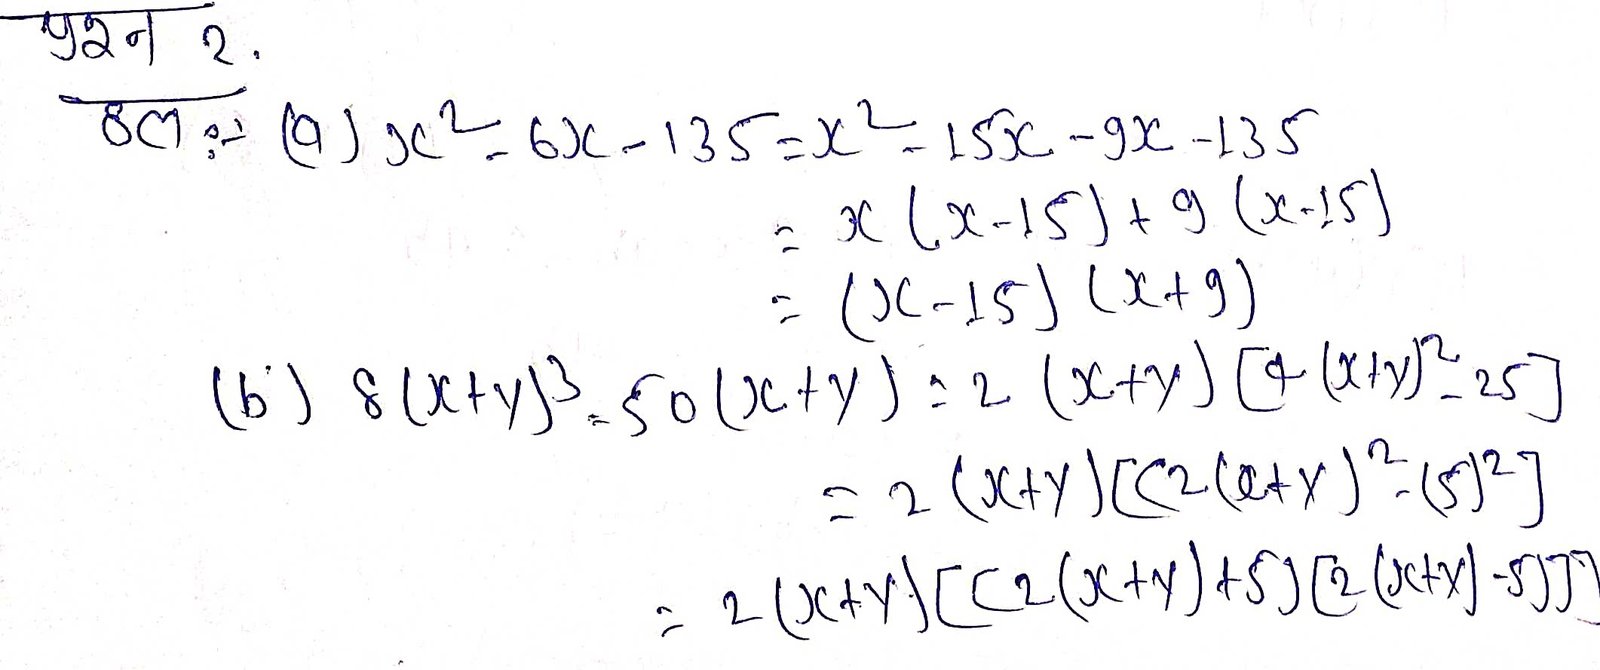 प्रश्न 2.
हल :- (a) x² - 6x - 135 = x² - 15x - 9x - 135
= x (x - 15) + 9 (x - 15)
= (x - 15) (x + 9)
(b) 8(x+y)³ - 50(x+y) = 2 (x+y) [4 (x+y)² - 25]
= 2 (x+y) [(2(x+y)² - (5)²]
= 2(x+y) [(2(x+y) + 5) [2 (x+y) - 5)]]